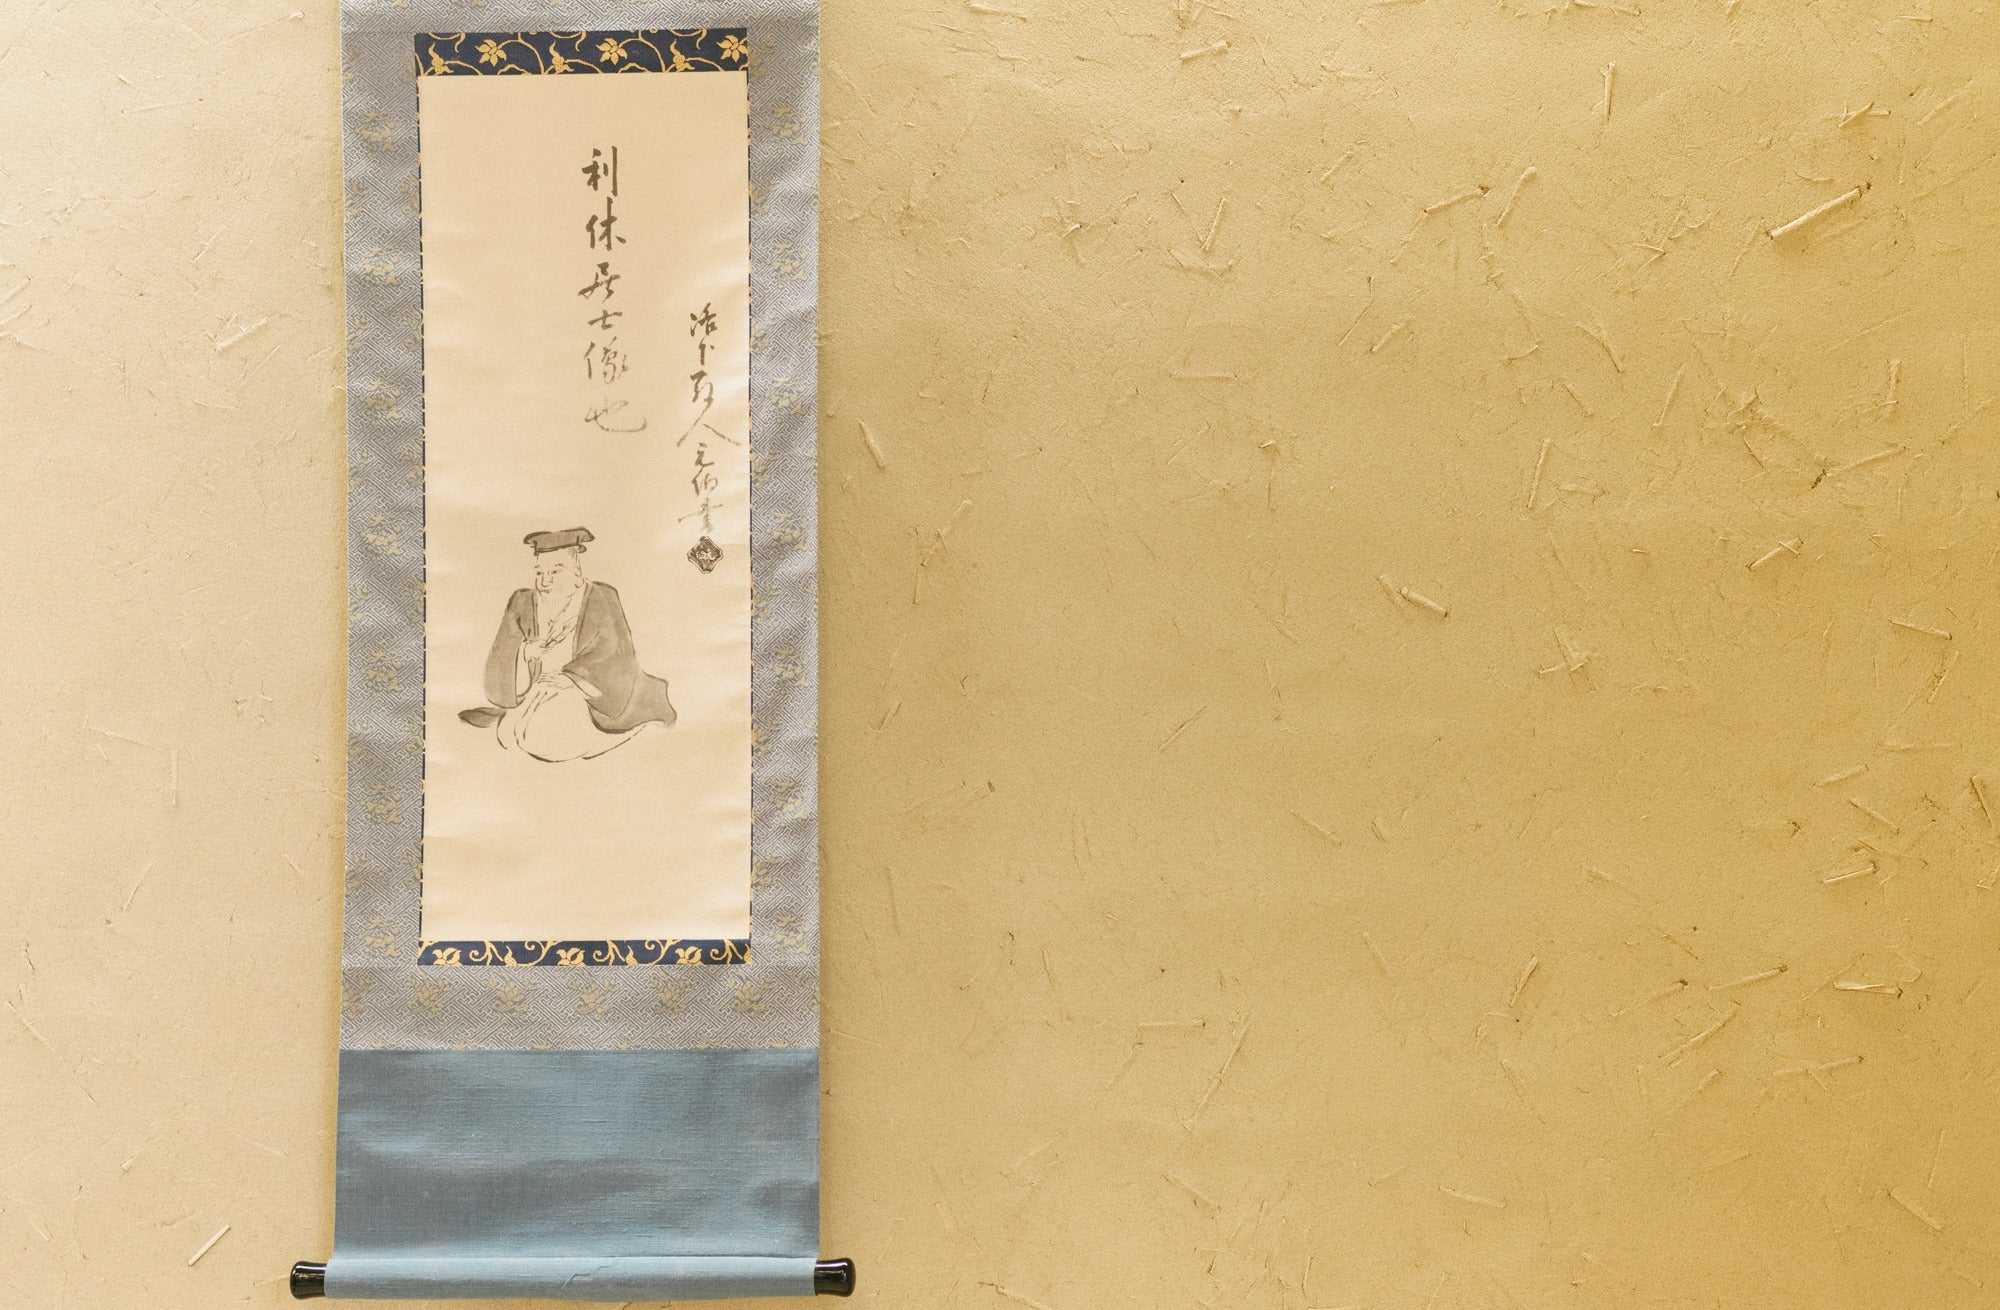 利休居士像也
洛下人元伯書